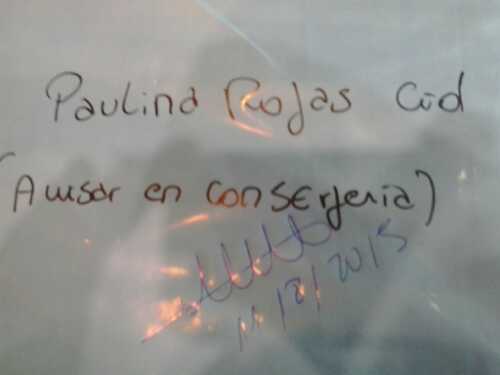 Paulina Rojas Cid
(Avisar en Conserjeria)
11/2/2015